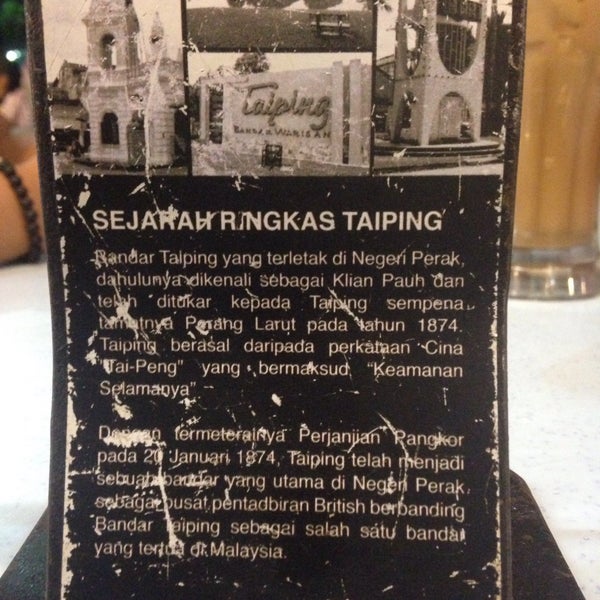 Taiping
BANDAR WARISAN
SEJARAH RINGKAS TAIPING
Bandar Taiping yang terletak di Negeri Perak,
dahulunya dikenali sebagai Klian Pauh dan
telah ditukar kepada Taiping sempena
tamatnya Perang Larut pada tahun 1874.
Taiping berasal daripada perkataan Cina
"Tai-Peng" yang bermaksud "Keamanan
Selamanya"
Dengan termeterainya Perjanjian Pangkor
pada 20 Januari 1874, Taiping telah menjadi
sebuah bandar yang utama di Negeri Perak
sebagai pusat pentadbiran British berbanding
Bandar Taiping sebagai salah satu bandar
yang tertua di Malaysia.